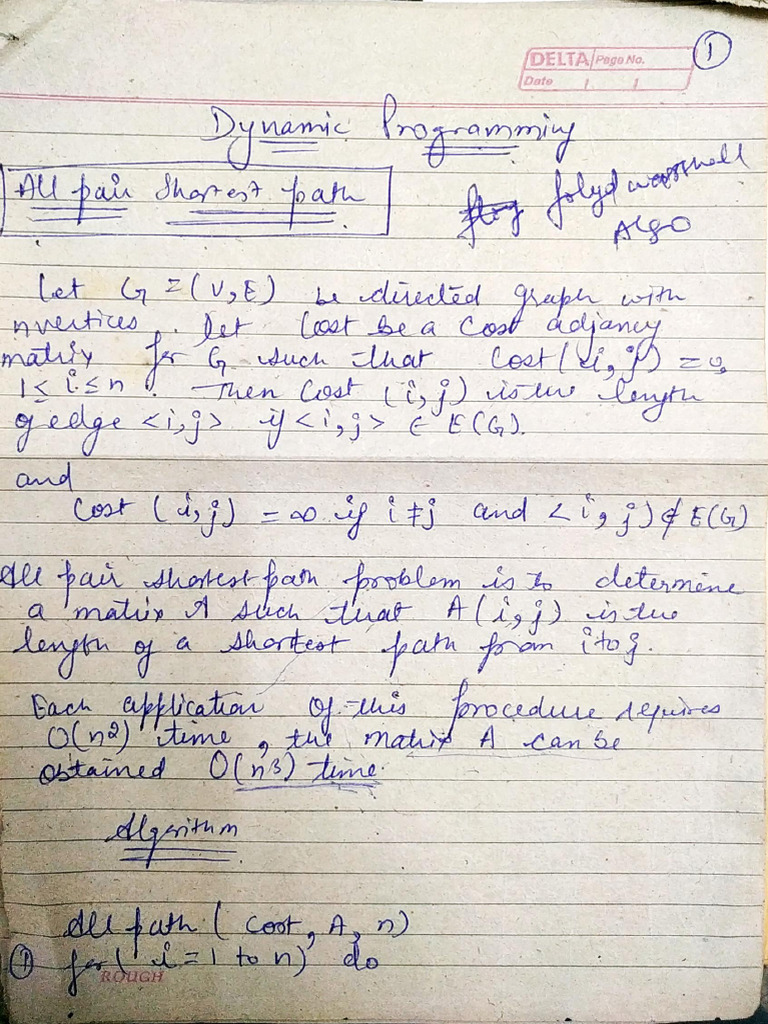 ①
DELTA Page No.
Date / /
Dynamic Programming
All pair Shortest path
folyd warshall
Algo
Let G = (V, E) be directed graph with
n vertices. let Cost be a Cost adjancy
matrix for G such that Cost(i, j) = 0,
1 ≤ i ≤ n. Then Cost (i, j) is the length
of edge <i, j> if <i, j> ∈ E(G).
and
Cost (i, j) = ∞ if i ≠ j and <i, j) ∉ E(G)
All pair shortest path problem is to determine
a matrix A such that A(i, j) is the
length of a shortest path from i to j.
Each application of this procedure requires
O(n2) time, the matrix A can be
obtained O(n3) time.
Algorithm
All path ( Cost, A, n)
① for( i = 1 to n) do
ROUGH